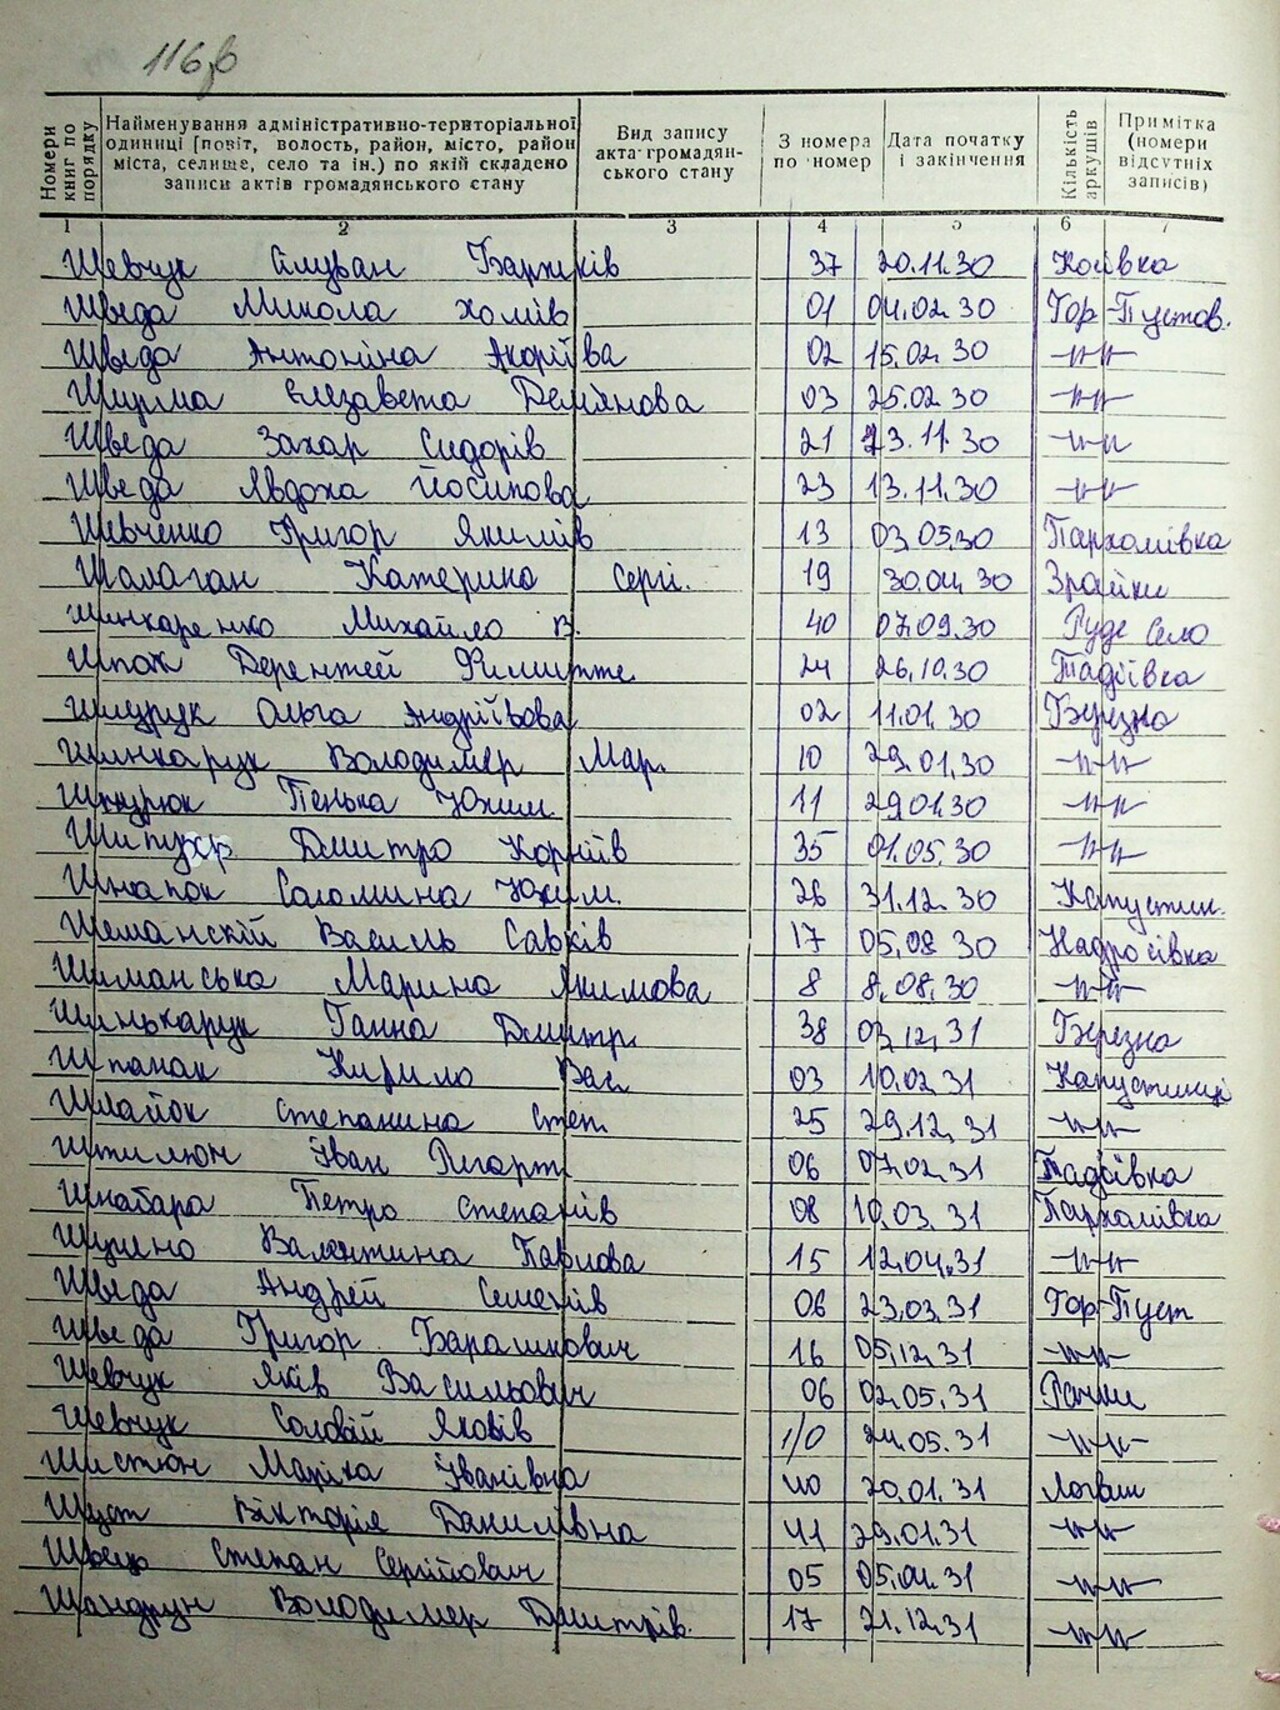 116 в
Номери книг по порядку
Найменування адміністративно-територіальної одиниці [повіт, волость, район, місто, район міста, селище, село та ін.) по якій складено записи актів громадянського стану
Вид запису акта громадян-ського стану
З номера по номер
Дата початку і закінчення
Кількість аркушів
Примітка (номери відсутніх записів)
1 2 3 4 5 6 7
Шевчук 37 20.11.30
Шведа Микола Хомів 01 04.02.30 Гор-Пустов.
Шведа Антоніна Андріїва 02 15.02.30 -//-
Ширма Єлизавета Демянова 03 25.02.30 -//-
Шведа Захар Сидорів 21 23.11.30 -//-
Шведа Явдоха Йосипова 23 13.11.30 -//-
Шевченко Григор Якимів 13 03.05.30 Пархомівка
Шалаган Катерина Сергі. 19 30.04.30 Зрайки
Шинкаренко Михайло В. 40 07.09.30 Руде Село
24 26.10.30 Тадіївка
Ольга Андріївова 02 11.01.30 Березна
Шинкарук Володимер Мар. 10 29.01.30 -//-
Юхим. 11 29.01.30 -//-
Дмитро Корніїв 35 01.05.30 -//-
Шнапок Соломина Юхим. 26 31.12.30 Капустин.
Шеманскій Василь Савків 17 05.08 30 Надросівка
Шиманська Марина Якимова 8 8.08.30 -//-
Шинькарук Ганна Дмитр. 38 03.12.31 Березна
Кирило Вас. 03 10.02.31 Капустинці
Шлайок Степанина Степ. 25 29.12.31 -//-
Іван 06 07.02.31 Тадіївка
Шнабара Петро Степанів 08 10.03.31 Пархомівка
Валентина Павлова 15 12.04.31 -//-
Шведа Андрей Семенів 06 23.03.31 Гор-Пуст
Шведа Григор 16 05.12.31 -//-
Шевчук Яків Васильович 06 02.05.31
Шевчук Соловій Яковів 1/0 24.05.31 -//-
Іванівна 40 20.01.31 Логвин
Шуст Вікторія Данилівна 41 29.01.31 -//-
Швець Степан Сергійович 05 05.04.31 -//-
Шандрун Володимер Дмитрів. 17 21.12.31 -//-